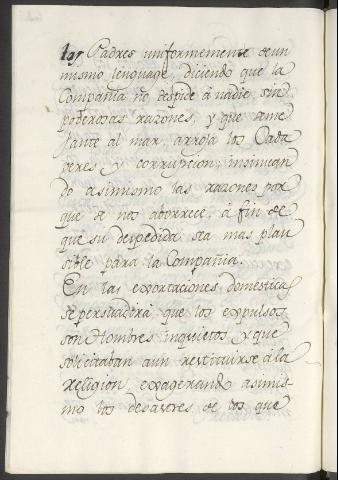 los Padres uniformemente de un
mismo lenguage, diciendo que la
Compañia no despide á nadie sin
poderosas razones, y que seme
jante al mar, arroja los Cada
veres y corrupcion; insinuan
do asimismo las razones por
que se nos aborrece, á fin de
que su despedida sea mas plau
sible para la Compañia.
En las exortaciones domesticas
se persuadirá que los expulsos
son Hombres inquietos, y que
solicitaban aun restituirse á la
Religion, exagerando asimis
mo los desastres de los que